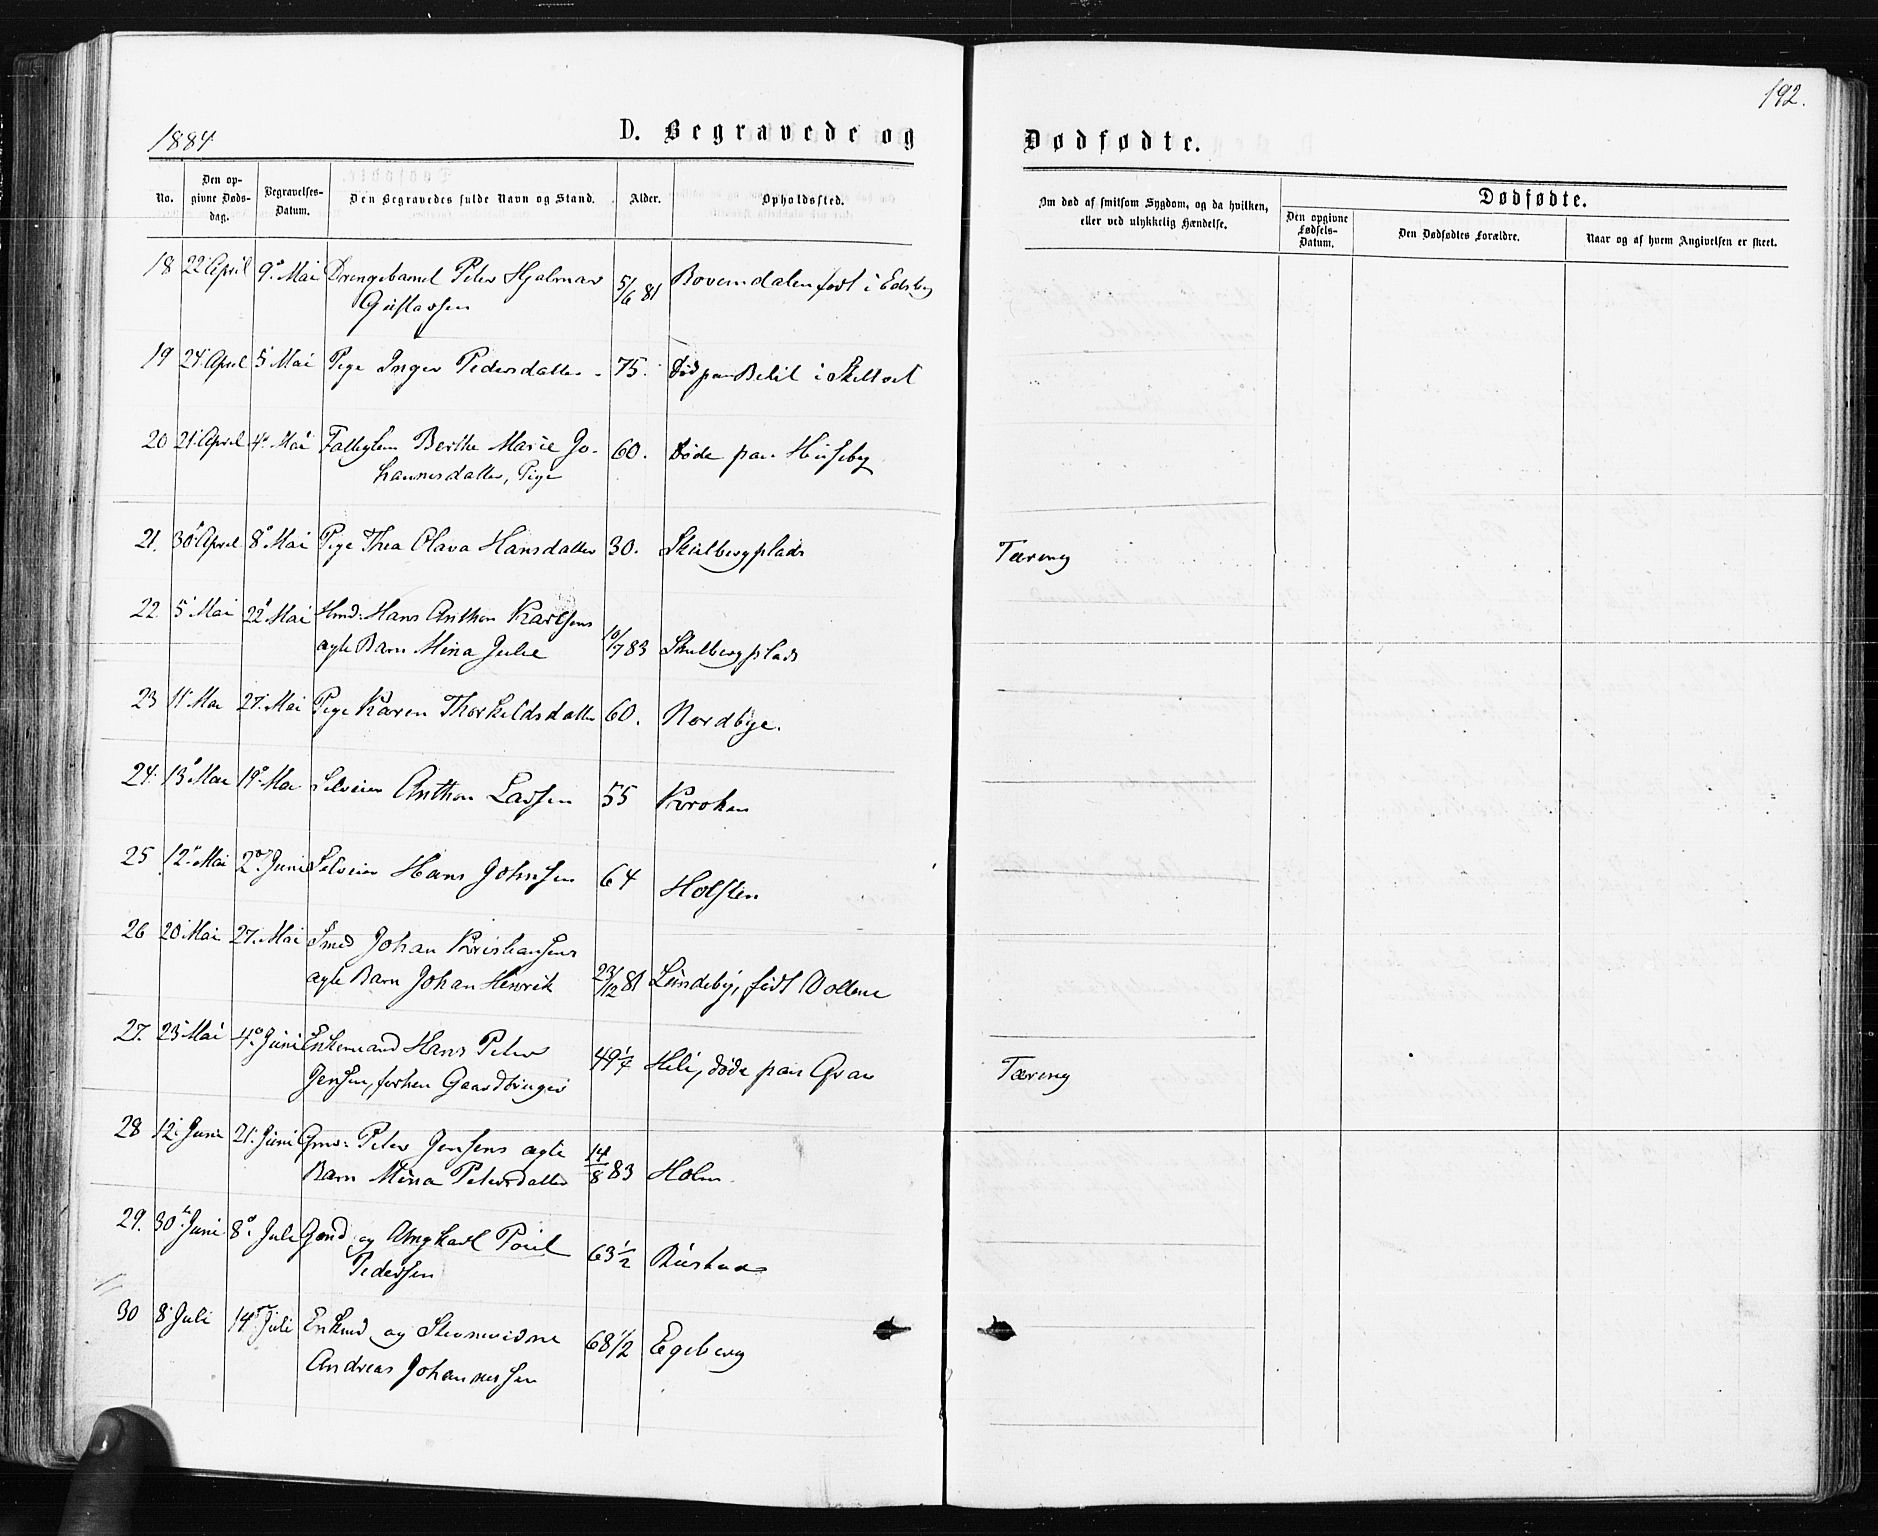 192.
1884
D. Begravede og
Dødfødte.
No.
Den op-
givne Døds-
dag.
Begravelses-
Datum.
Den Begravedes fulde Navn og Stand.
Alder.
Opholdssted.
Om død af smitsom Sygdom, og da hvilken,
eller ved ulykkelig Hændelse.
Dødfødte.
Den opgivne
Fødsels-
Datum.
Den Dødfødtes Forældre.
Naar og af hvem Angivelsen er skeet.
18 22 April 9 Mai Drengebarnet Peter Hjalmar 5/6 81 født i Edsberg
Gustavsen
19 24 April 5 Mai Pige Inger Pedersdatter 75. Død paa i Skiltvet
20 21 April 4 Mai Berthe Marie Jo- 60. Døde paa Huseby
hannesdatter, Pige
21. 30 April 8 Mai Pige Thea Olava Hansdatter 30. Skulbergplads Tæring
22 5 Mai 22 Mai Hmd: Hans Anthon Karlsens
ægte Barn Mina Julie 10/7 83 Skulbergplads
23 11 Mai 27. Mai Pige Karen Thorkildsdatter 60. Nordbye.
24. 13 Mai 19 Mai Selveier Anthon Larsen 55 Kroken
25 12 Mai 2 Juni Selveier Hans Johnsen 64 Holsten
26 20 Mai 27. Mai Smed Johan Kristiansens
ægte Barn Johan Henrik 23/12 81 Lundeby, født Vollene
27. 23 Mai 4 Juni Enkemand Hans Peter 49 1/4 Heli, døde paa Græn Tæring
Jensen, forhen Gaardbruger
28 12. Juni 21. Juni Gmd: Peter Jensens ægte 14/8 83 Holm
Barn Mina Petersdatter
29. 30 Juni 8. Juli Gmd og Poul 63 1/2 Rustad
Pedersen
30 8 Juli 14 Juli Enkmd og 68 1/2 Egeberg
Andreas Johannessen